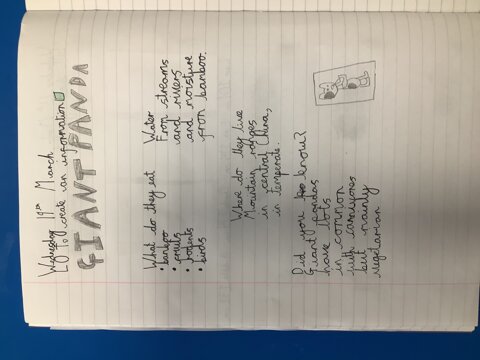 Wednesday 19th March
LI- to create an information
GIANT PANDA
What do they eat
• bamboo
• fruits
• rodents
• birds
Water
From streams
and rivers
and moisture
from bamboo.
Where do they live
Mountain ranges
in central China,
in temperate.
Did you know?
Giant pandas
have lots
in common
with carnivores
but mainly
vegetarian